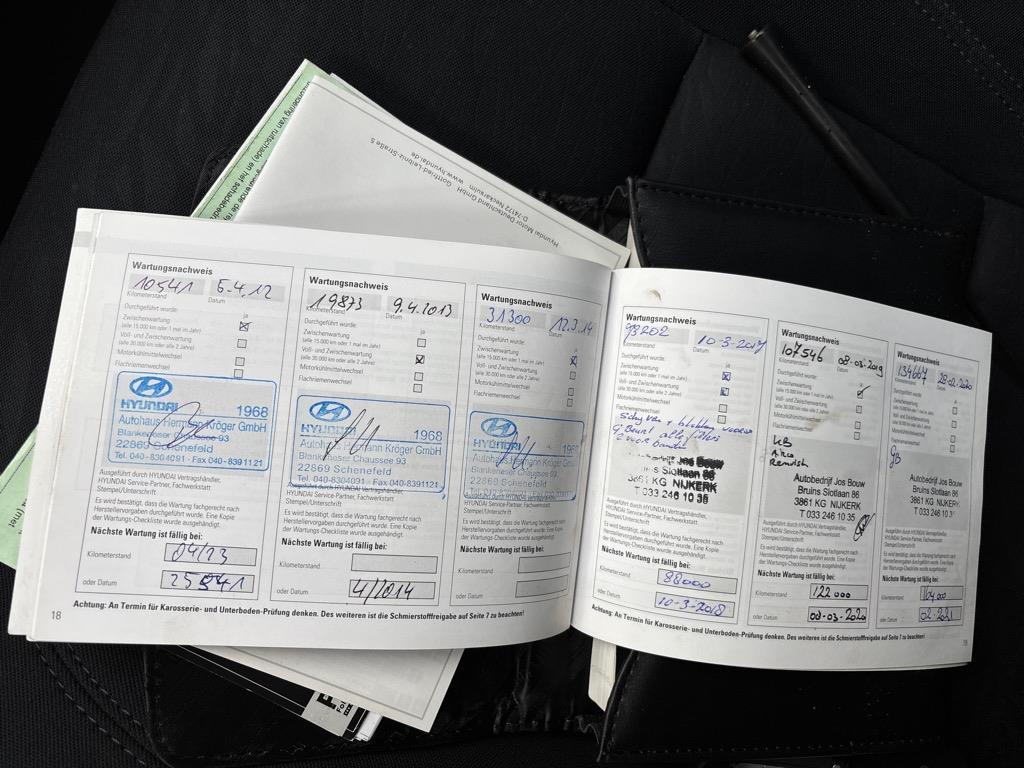 Motor Deutschland GmbH Gottfried-Leibniz-Straße 5
D-74172 Neckarsulm www.hyundai.de
Wartungsnachweis
10541 5.4.12
Kilometerstand Datum
Durchgeführt wurde: ja
Zwischenwartung
(alle 15.000 km oder 1 mal im Jahr)
Voll- und Zwischenwartung
(alle 30.000 km oder alle 2 Jahre)
Motorkühlmittelwechsel
Flachriemenwechsel
HYUNDAI 1968
Autohaus Hermann Kröger GmbH
Blankeneser Chaussee 93
22869 Schenefeld
Tel. 040-8304091 · Fax 040-8391121
Ausgeführt durch HYUNDAI Vertragshändler,
HYUNDAI Service-Partner, Fachwerkstatt
Stempel/Unterschrift
Es wird bestätigt, dass die Wartung fachgerecht nach
Herstellervorgaben durchgeführt wurde. Eine Kopie
der Wartungs-Checkliste wurde ausgehändigt.
Nächste Wartung ist fällig bei:
Kilometerstand 04/13
oder Datum 25541
Wartungsnachweis
19873 9.4.2013
Kilometerstand Datum
Durchgeführt wurde: ja
Zwischenwartung
(alle 15.000 km oder 1 mal im Jahr)
Voll- und Zwischenwartung
(alle 30.000 km oder alle 2 Jahre)
Motorkühlmittelwechsel
Flachriemenwechsel
HYUNDAI 1968
Autohaus Hermann Kröger GmbH
Blankeneser Chaussee 93
22869 Schenefeld
Tel. 040-8304091 · Fax 040-8391121
HYUNDAI Service-Partner, Fachwerkstatt
Stempel/Unterschrift
Es wird bestätigt, dass die Wartung fachgerecht nach
Herstellervorgaben durchgeführt wurde. Eine Kopie
der Wartungs-Checkliste wurde ausgehändigt.
Nächste Wartung ist fällig bei:
Kilometerstand
oder Datum 4/2014
Wartungsnachweis
31300 12.3.14
Kilometerstand Datum
Durchgeführt wurde: ja
Zwischenwartung
(alle 15.000 km oder 1 mal im Jahr)
Voll- und Zwischenwartung
(alle 30.000 km oder alle 2 Jahre)
Motorkühlmittelwechsel
Flachriemenwechsel
HYUNDAI
Autohaus Hermann Kröger GmbH
Blankeneser Chaussee 93
22869 Schenefeld
Tel. 040-8304091
HYUNDAI Service-Partner, Fachwerkstatt
Stempel/Unterschrift
Es wird bestätigt, dass die Wartung fachgerecht nach
Herstellervorgaben durchgeführt wurde. Eine Kopie
der Wartungs-Checkliste wurde ausgehändigt.
Nächste Wartung ist fällig bei:
Kilometerstand
oder Datum
Achtung: An Termin für Karosserie- und Unterboden-Prüfung denken. Des weiteren ist die Schmierstofffreigabe auf Seite 7 zu beachten!
18
Wartungsnachweis
10-3-2017
Kilometerstand Datum
Durchgeführt wurde: ja
Zwischenwartung
(alle 15.000 km oder 1 mal im Jahr)
Voll- und Zwischenwartung
(alle 30.000 km oder alle 2 Jahre)
Motorkühlmittelwechsel
Flachriemenwechsel
Jos Bouw
Slotlaan 86
3861 KG NIJKERK
T 033 246 10 35
Ausgeführt durch HYUNDAI Vertragshändler,
HYUNDAI Service-Partner, Fachwerkstatt
Stempel/Unterschrift
Es wird bestätigt, dass die Wartung fachgerecht nach
Herstellervorgaben durchgeführt wurde. Eine Kopie
der Wartungs-Checkliste wurde ausgehändigt.
Nächste Wartung ist fällig bei:
Kilometerstand 88000
oder Datum 10-3-2018
Wartungsnachweis
107546 08-03-2019
Kilometerstand Datum
Durchgeführt wurde: ja
Zwischenwartung
(alle 15.000 km oder 1 mal im Jahr)
Voll- und Zwischenwartung
(alle 30.000 km oder alle 2 Jahre)
Motorkühlmittelwechsel
Flachriemenwechsel
KB
Airco
Remvlsh
Autobedrijf Jos Bouw
Bruins Slotlaan 86
3861 KG NIJKERK
T 033 246 10 35
Ausgeführt durch HYUNDAI Vertragshändler,
HYUNDAI Service-Partner, Fachwerkstatt
Stempel/Unterschrift
Es wird bestätigt, dass die Wartung fachgerecht nach
Herstellervorgaben durchgeführt wurde. Eine Kopie
der Wartungs-Checkliste wurde ausgehändigt.
Nächste Wartung ist fällig bei:
Kilometerstand 122000
oder Datum 08-03-2020
Wartungsnachweis
134667 28-02-2020
Kilometerstand Datum
Durchgeführt wurde: ja
Zwischenwartung
(alle 15.000 km oder 1 mal im Jahr)
Voll- und Zwischenwartung
(alle 30.000 km oder alle 2 Jahre)
Motorkühlmittelwechsel
Flachriemenwechsel
GB
Autobedrijf Jos Bouw
Bruins Slotlaan 86
3861 KG NIJKERK
T 033 246 10
Stempel/Unterschrift
Es wird bestätigt, dass die Wartung fachgerecht nach
Herstellervorgaben durchgeführt wurde. Eine Kopie
der Wartungs-Checkliste wurde ausgehändigt.
Nächste Wartung ist fällig bei:
Kilometerstand
oder Datum 02-2021
Achtung: An Termin für Karosserie- und Unterboden-Prüfung denken. Des weiteren ist die Schmierstofffreigabe auf Seite 7 zu beachten!